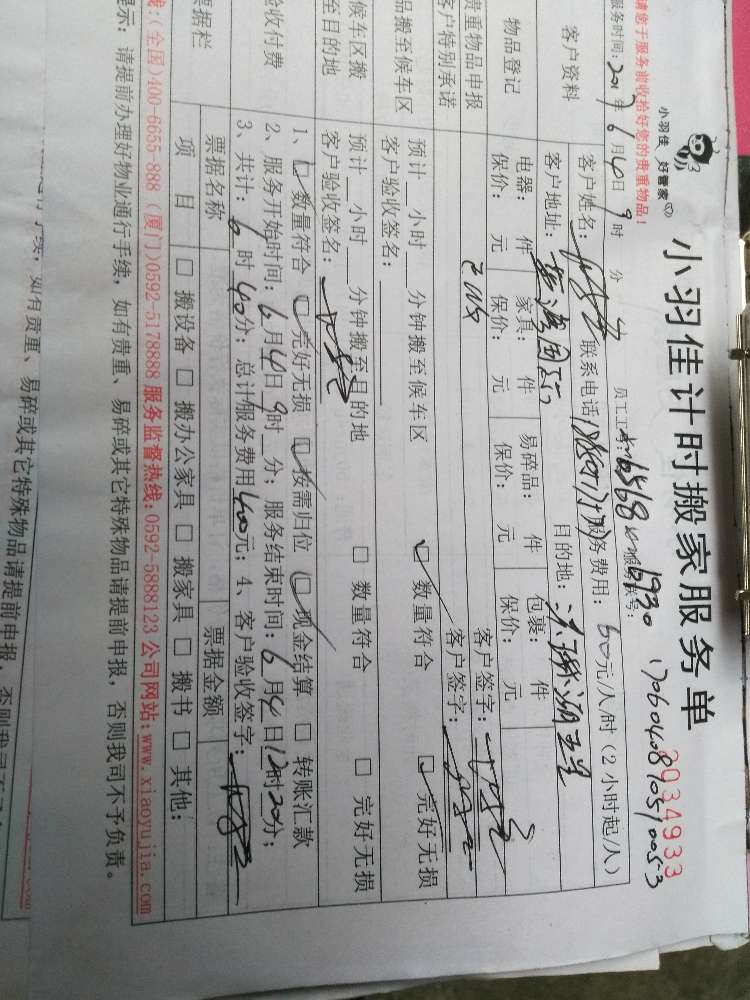 小羽佳 好管家
小羽佳计时搬家服务单
2034933
请您于服务前收拾好您的贵重物品!
170604087051005-3
服务时间: 2017年6月4日9时 分
员工工号: 6568 6930 服务账号:
客户资料
客户姓名: 联系电话 服务费用: 60元/人时(2小时起/人)
客户地址: 目的地:
物品登记
电器: 件 家具: 件 易碎品: 件 包裹: 件
保价: 元 保价: 元 保价: 元 保价: 元
贵重物品申报 客户签字:
客户特别承诺 客户签字:
品搬至候车区
预计 小时 分钟搬至候车区 数量符合 完好无损
客户验收签名:
候车区搬至目的地
预计 小时 分钟搬至目的地 数量符合 完好无损
客户验收签名:
验收付费
1、数量符合 完好无损 按需归位 现金结算 转账汇款
2、服务开始时间: 6月4日9时 分; 服务结束时间: 6月4日12时20分;
3、共计: 6时40分; 总计服务费用400元; 4、客户验收签字:
票据栏
票据名称 票据金额
项 目 搬设备 搬办公家具 搬家具 搬书 其他:
线:(全国)400-6655-888 (厦门)0592-5178888 服务监督热线:0592-5888123 公司网站:www.xiaoyujia.com
提示: 请提前办理好物业通行手续, 如有贵重、易碎或其它特殊物品请提前申报, 否则我司不予负责。
行手续, 如有贵重、易碎或其它特殊物品请提前申报, 否则我司不